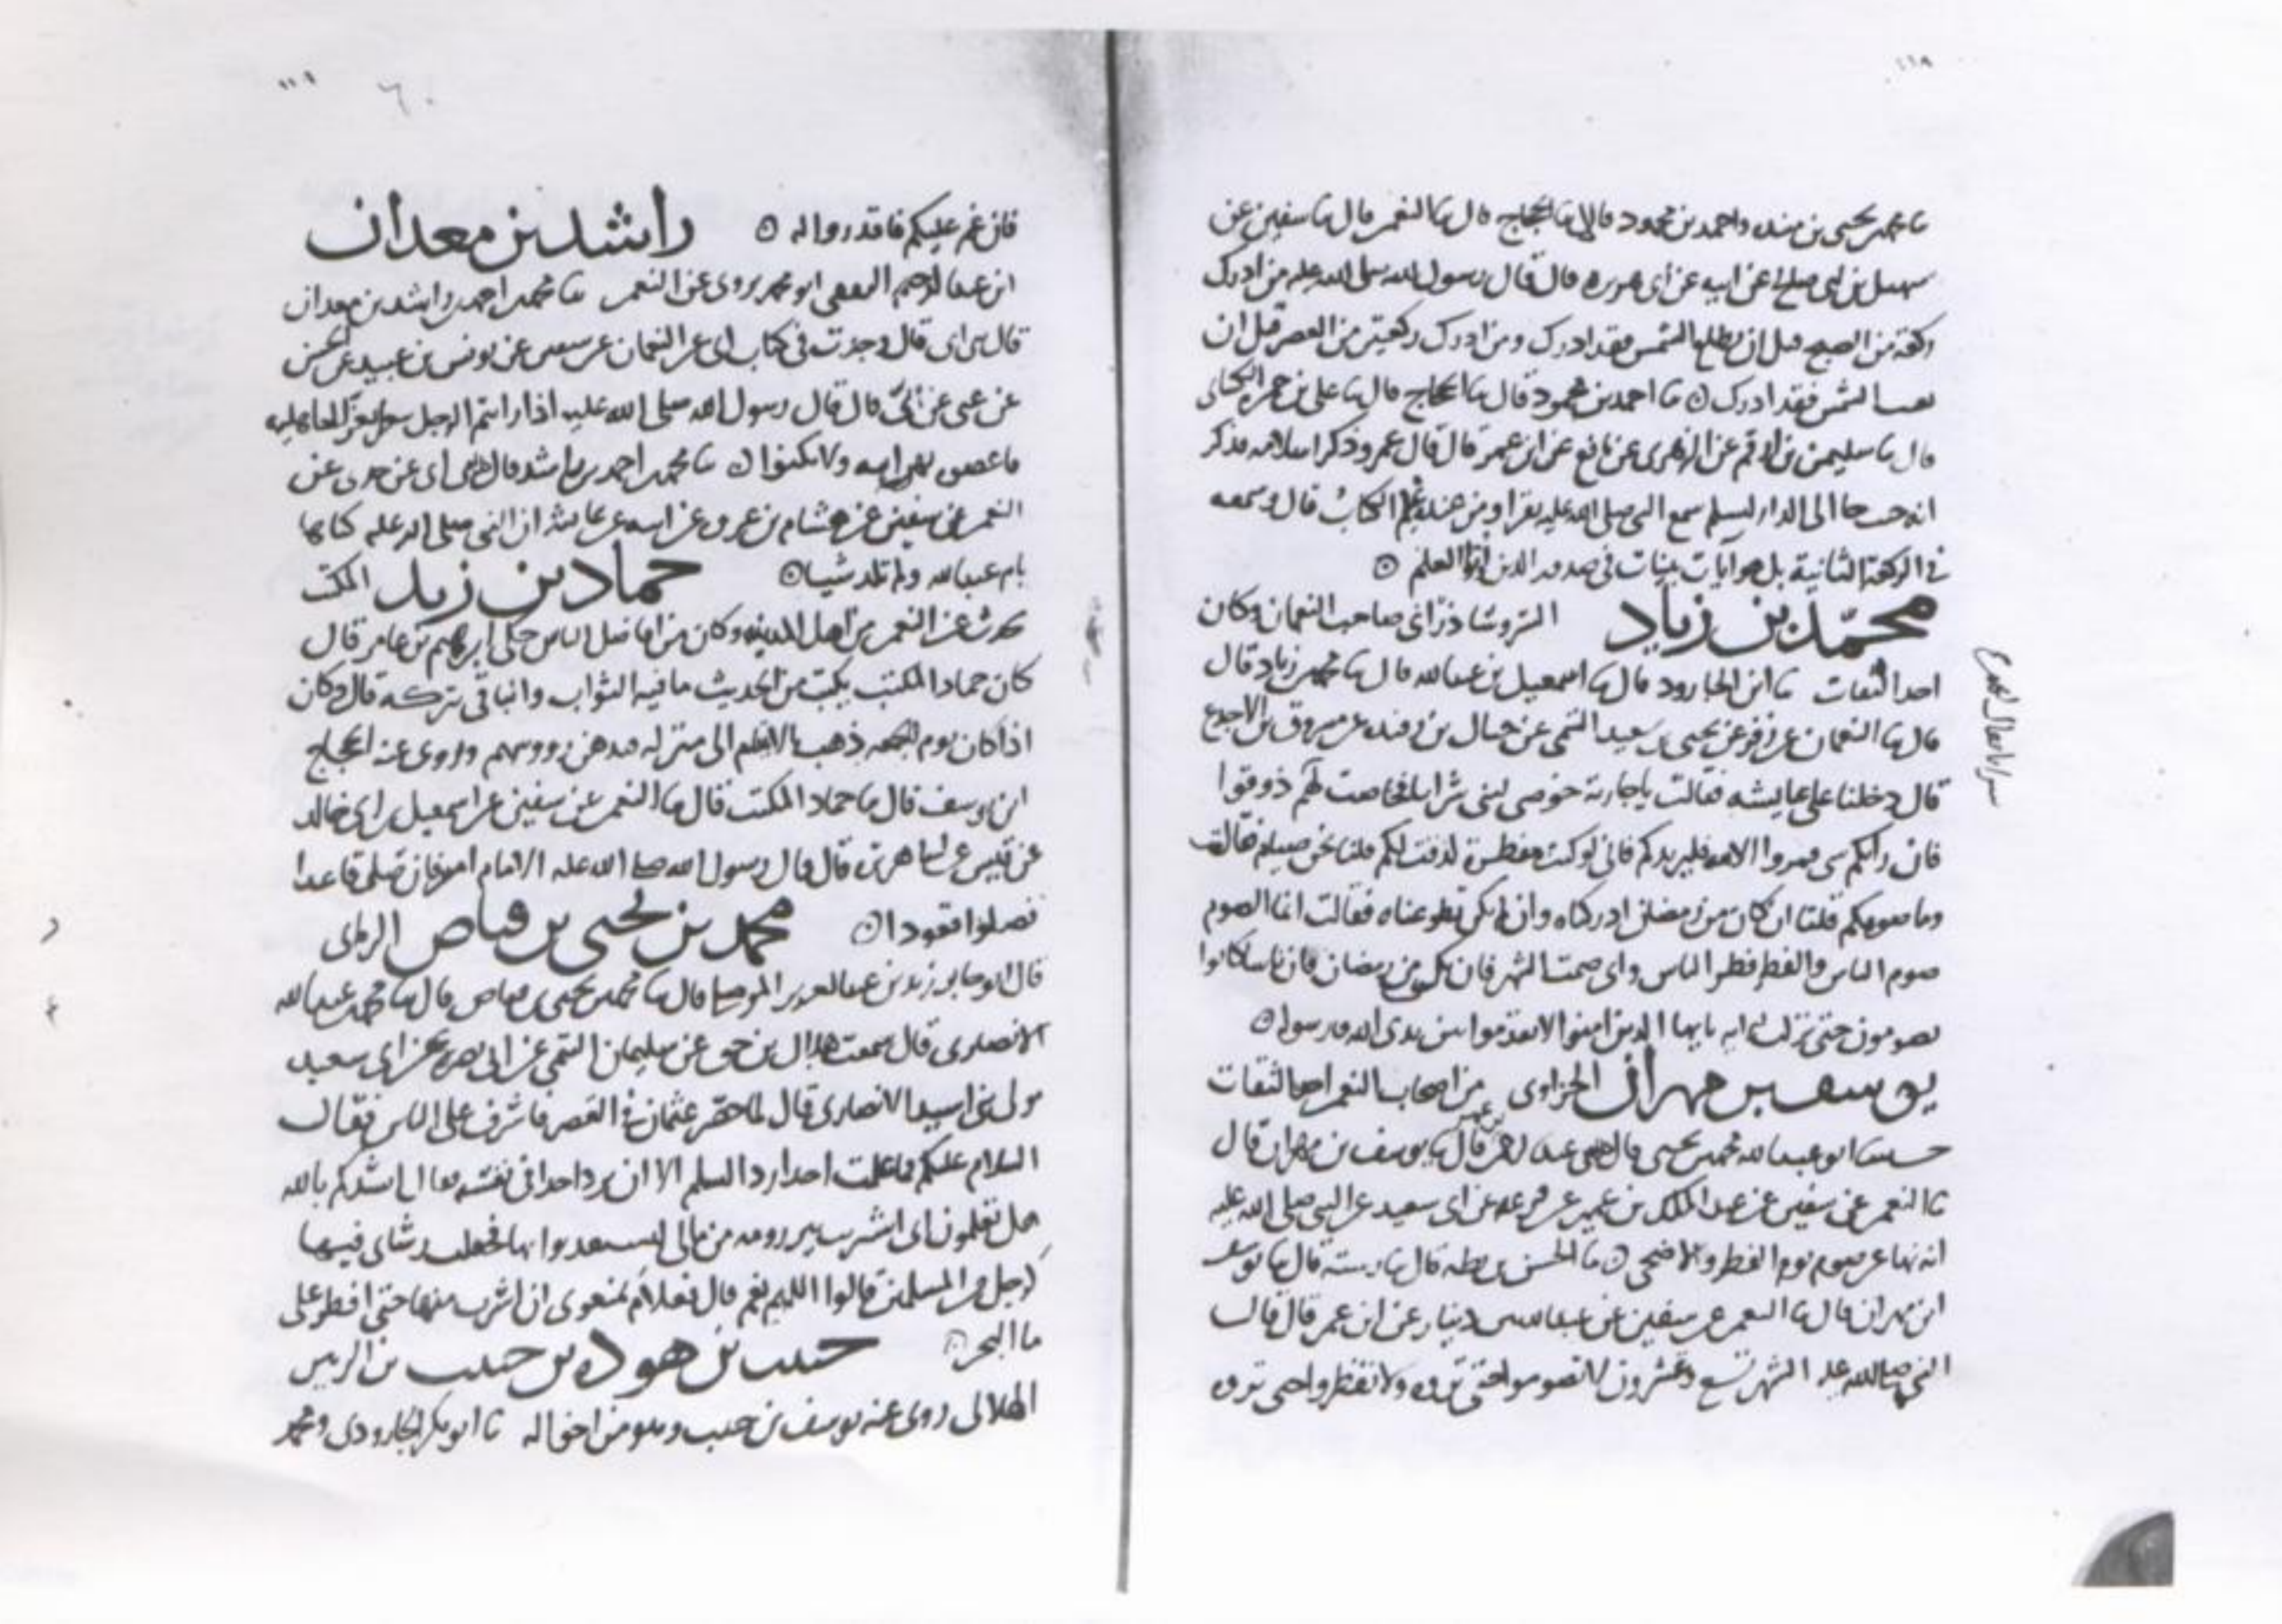 ١١٨
ثنا محمد بن يحيى بن منده واحمد بن محمود قالا ثنا الحجاج قال ثنا النعمن قال ثنا سفين عن
سهيل بن ابى صلح عن ابيه عن ابى هريره قال قال رسول الله صلى الله عليه من ادرك
ركعة من الصبح قبل ان تطلع الشمس فقد ادرك ومن ادرك ركعتين من العصر قبل ان
تغيب الشمس فقد ادرك ثنا احمد بن محمود قال ثنا الحجاج قال ثنا على بن حمزه الكسائى
قال ثنا سليمن بن ارقم عن الزهرى عن نافع عن ابن عمر قال قال عمر وذكر اسلامه فذكر
انه حيث جا الى الدار ليسلم سمع النبى صلى الله عليه يقرا ومن عنده علم الكتاب قال وسمعه
فى الركعة الثانية بل هو ايات بينات فى صدور الذين اوتوا العلم
محمد بن زياد التروشاذرانى صاحب النعمان وكان
احد الثقات ثنا ابن الجارود قال ثنا اسمعيل بن عبد الله قال ثنا محمد بن زياد قال
قال ثنا النعمان عن زفر عن يحيى بن سعيد التيمى عن حبال بن رفيده عن مسروق بن الاجدع
قال دخلنا على عايشه فقالت ياجارية خوضى لبنى شرابا فخاضت لهم ذوقوا
فان رابكم شى فمروا الامه فليزدكم فانى لو كنت مفطرة لذقت لكم قلنا نحن صيام فقالت
وما صومكم قلنا ان كان من رمضان ادركناه وان لم يكن تطوعناه فقالت انما الصوم
صوم الناس والفطر فطر الناس وانى صمت الشهر فان يكن من رمضان فان ناسا كانوا
يصومون حتى نزلت ايه يايها الذين امنوا لا تقدموا بين يدى الله ورسوله
يوسف بن مهران الحزاوى من اصحاب النعمن احد الثقات
حدثنا ابو عبد الله محمد بن يحيى قال ثنا عبد الرحمن بن عمر قال ثنا يوسف بن مهران قال
ثنا النعمن عن سفين عن عبد الملك بن عمير عن قزعه عن ابى سعيد عن النبى صلى الله عليه
انه نها عن صوم يوم الفطر والاضحى ثنا الحسن بن بطه قال ثنا رسته قال ثنا يوسف
ابن مهران قال ثنا النعمن عن سفين عن عبد الله بن دينار عن ابن عمر قال قال
النبى صلى الله عليه الشهر تسع وعشرون لا تصوموا حتى تروه ولا تفطروا حتى تروه
٦٠
فان غم عليكم فاقدروا له راشد بن معدان
ابن عبد الرحيم ابو محمد يروى عن النعمن ثنا محمد بن احمد بن راشد بن معدان
قال ثنا ابى قال وجدت فى كتاب ابى عن النعمان عن عن يونس بن عبيد عن الحسن
عن عتى عن ابى قال قال رسول الله صلى الله عليه اذا رايتم الرجل يتعزى بعزا الجاهليه
فاعضوه بهن ابيه ولا تكنوا ثنا محمد بن احمد بن راشد قال ثنا ابى عن جدى عن
النعمن عن سفين عن هشام بن عروه عن ابيه عن عايشه ان النبى صلى الله عليه كناها
بام عبد الله ولم تلد شيا حماد بن زيد المكتب
يحدث عن النعمن من اهل المدينه وكان من افاضل الناس حكى ابرهيم بن عامر قال
كان حماد المكتب يكتب من الحديث ما فيه الثواب والباقى تركه قال وكان
اذا كان يوم الجمعه ذهب بالايتام الى منزله فدهن رووسهم وروى عنه الحجاج
ابن يوسف قال ثنا حماد المكتب قال ثنا النعمن عن سفين عن اسمعيل بن ابى خالد
عن قيس عن ابى هريره قال قال رسول الله صلى الله عليه الامام امير فان صلى قاعدا
فصلوا قعودا محمد بن يحيى بن فياض الزمانى
قال ابو جابر زيد بن عبد العزيز الموصلى قال ثنا محمد بن يحيى بن فياض قال ثنا محمد بن عبد الله
الانصارى قال سمعت هلال بن حق عن سليمان التيمى عن ابى نضره عن ابى سعيد
مولى بنى اسيد الانصارى قال لما حصر عثمان فى القصر فاشرف على الناس فقال
السلام عليكم فما علمت احدا رد السلم الا ان يرد احد فى نفسه فقال انشدكم بالله
هل تعلمون انى اشتريت بير رومه من مالى ليستعذبوا بها فجعلت رشاى فيها
كرجل من المسلمين قالوا اللهم نعم قال فعلام تمنعونى ان اشرب منها حتى افطر على
ما البحر حبيب بن هوذه بن حبيب بن الزبير
الهلالى روى عنه يوسف بن حبيب وهو من اخواله ثنا ابو بكر الجارودى ومحمد